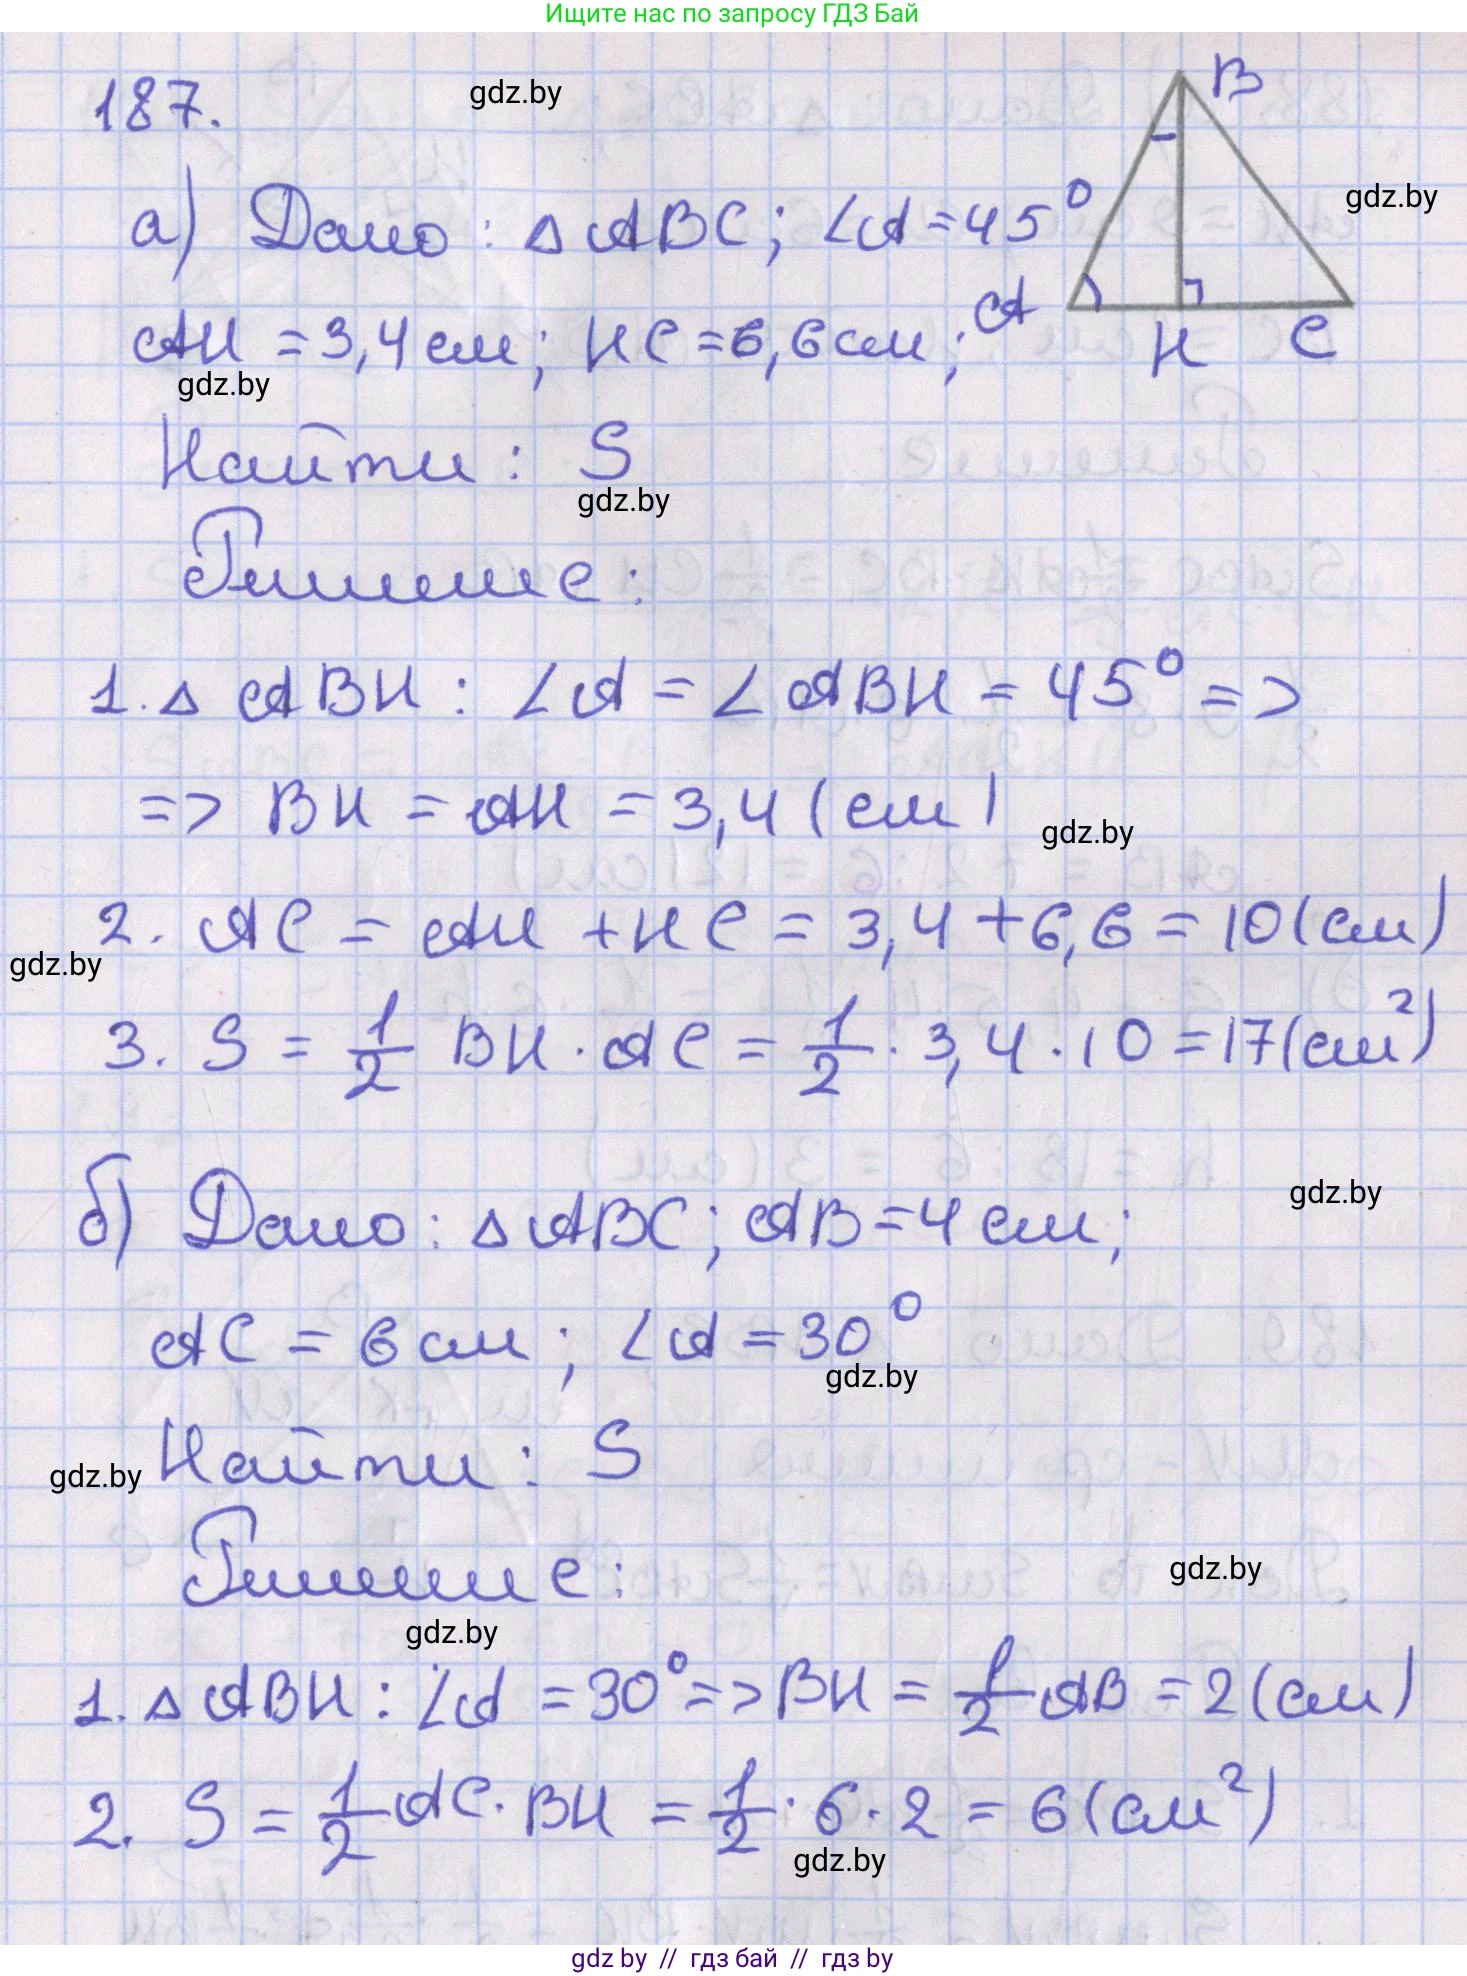 Ищите нас по запросу ГДЗ Бай
187.
gdz.by
B
gdz.by
а) Дано: △ABC; ∠A=45°
AH = 3,4 см; HC = 6,6 см;
A
H
C
gdz.by
Найти: S
gdz.by
Решение:
1. △ ABH: ∠A = ∠ABH = 45° =>
=> BH = AH = 3,4 (см)
gdz.by
2. AC = AH + HC = 3,4 + 6,6 = 10 (см)
gdz.by
3. S = 1/2 BH · AC = 1/2 · 3,4 · 10 = 17 (см²)
gdz.by
б) Дано: △ABC; AB = 4 см;
AC = 6 см; ∠A = 30°
gdz.by
Найти: S
gdz.by
Решение:
gdz.by
gdz.by
1. △ ABH: ∠A = 30° => BH = 1/2 AB = 2 (см)
2. S = 1/2 AC · BH = 1/2 · 6 · 2 = 6 (см²)
gdz.by
gdz.by // гдз бай // гдз by